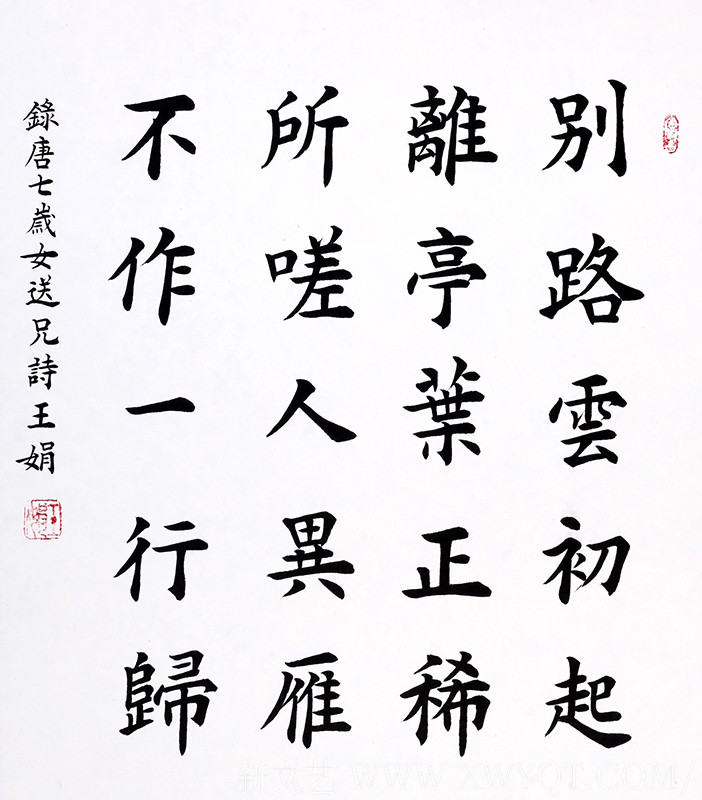 别路雲初起
離亭葉正稀
所嗟人異雁
不作一行歸
錄唐七歲女送兄詩王娟
新文艺 WWW.XWYQT.COM/